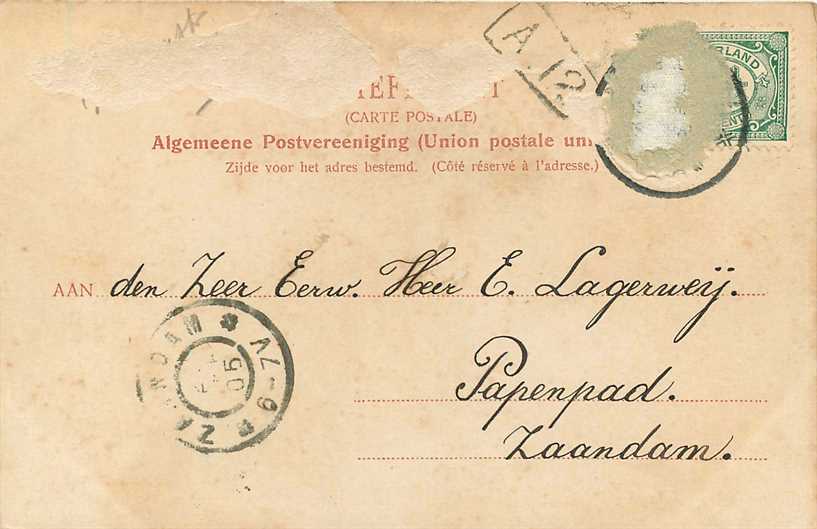 A.12
(CARTE POSTALE)
Algemeene Postvereeniging (Union postale un
Zijde voor het adres bestemd. (Côté réservé à l'adresse.)
AAN den Zeer Eerw. Heer E. Lagerweij.
Papenpad.
Zaandam.
ZAANDAM
05